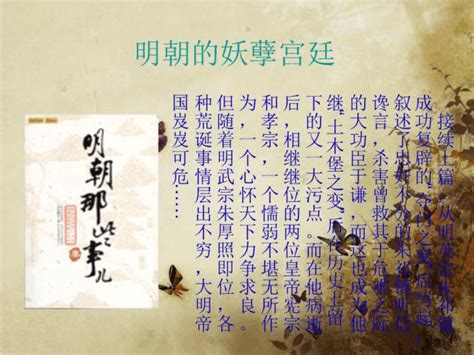 明朝的妖孽宫廷
接续上篇，从明英宗朱祁镇
成功复辟的“夺门之变”后写起，
叙述了忠奸不分的朱祁镇听信
谗言，杀害曾救其于危难之际
的大功臣于谦，而这也成为他
继“土木堡之变”在历史上留
下的又一大污点。而在他病逝
后，相继继位的两位皇帝宪宗
和孝宗，一个懦弱不堪无所作
为，一个心怀天下力争求良。
但随着明武宗朱厚照即位，各
种荒诞事情层出不穷，大明帝
国岌岌可危……
明朝那些事儿